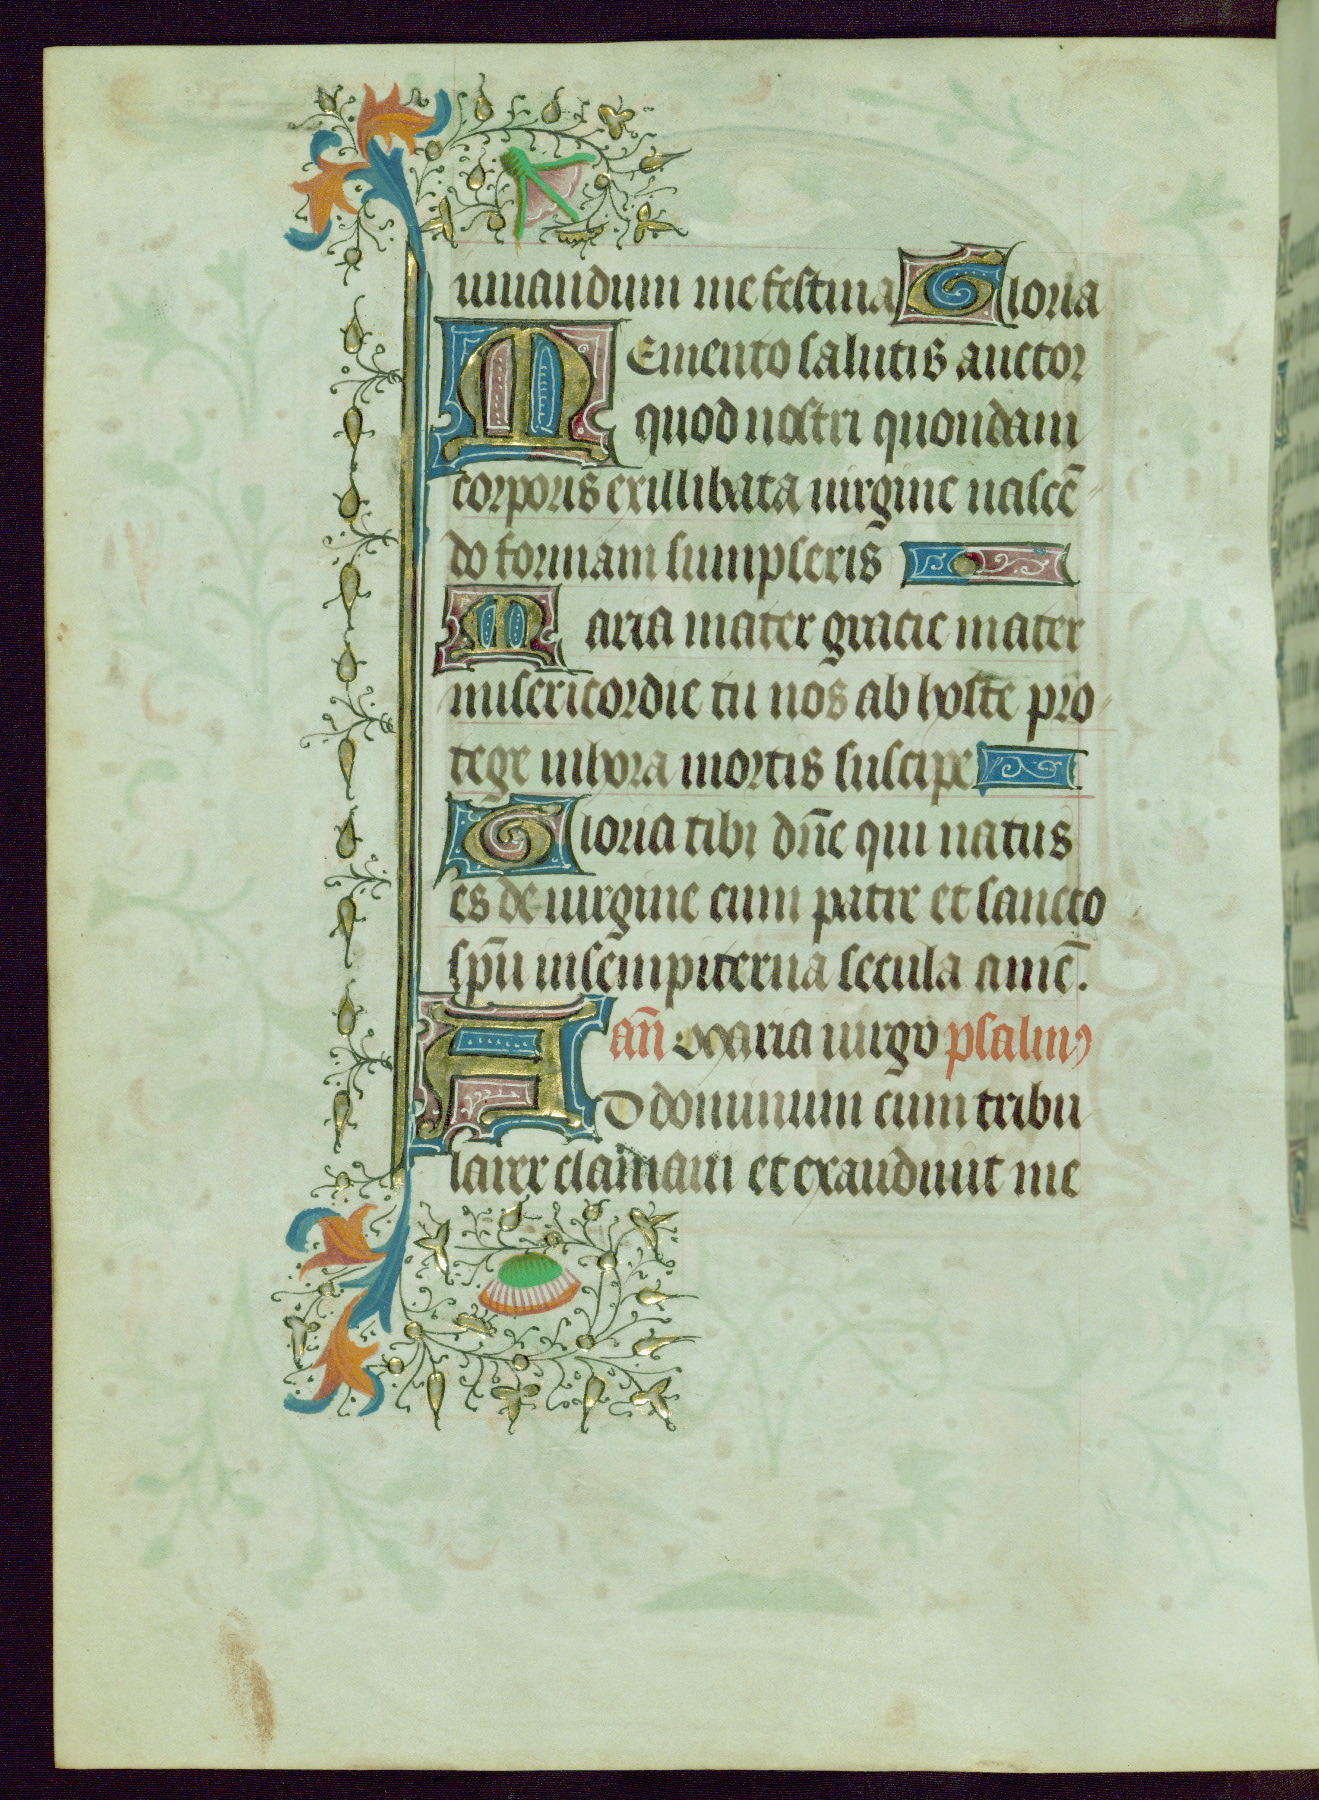 uiuandum me festina Gloria
Memento salutis auctor
quod nostri quondam
corporis exillibata uirgine nascē
do formam sumpseris
Maria mater gracie mater
misericordie tu nos ab hoste pro
tege inhora mortis suscipe
Gloria tibi dn̄e qui natus
es de uirgine cum patre et sancto
sp̄u insempiterna secula amē.
an̄ Maria uirgo psalmꝯ
AD dominum cum tribu
larer clamaui et exaudiuit me